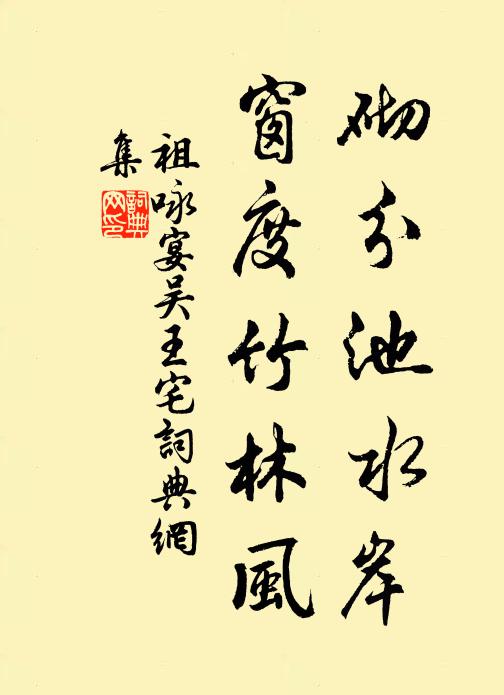 砌分池水岸
窗度竹林風
祖咏宴吴王宅詞典網
集
詞典網印